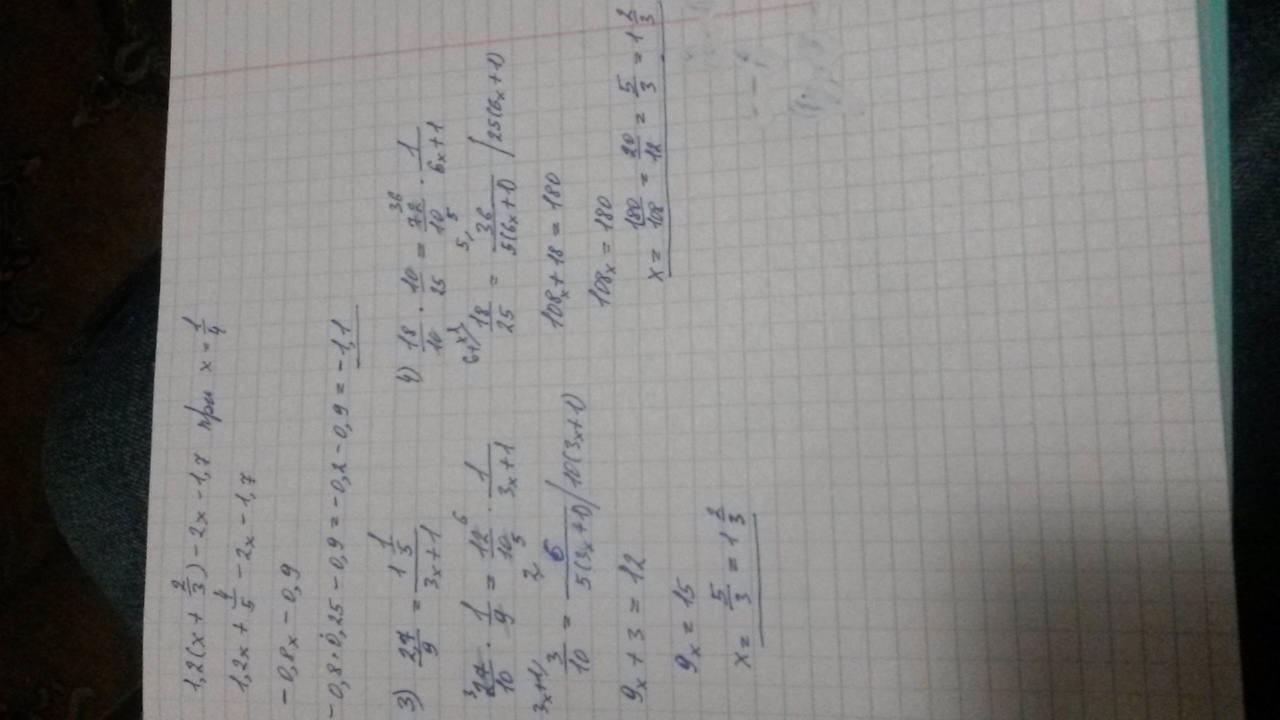 1,2(x + 2/3) - 2x - 1,7 при x = 1/4
1,2x + 4/5 - 2x - 1,7
- 0,8x - 0,9
- 0,8 · 0,25 - 0,9 = - 0,2 - 0,9 = - 1,1
3) 2,7/9 = 1 1/5 / 3x+1
27/10 · 1/9 = 12/10 · 1/3x+1
3/10 = 6/5(3x+1) / 10(3x+1)
9x + 3 = 12
9x = 15
x = 5/3 = 1 2/3
4) 18/10 · 10/25 = 72/10 · 1/6x+1
18/25 = 36/5(6x+1) / 25(6x+1)
108x + 18 = 180
108x = 180
x = 180/108 = 20/12 = 5/3 = 1 2/3